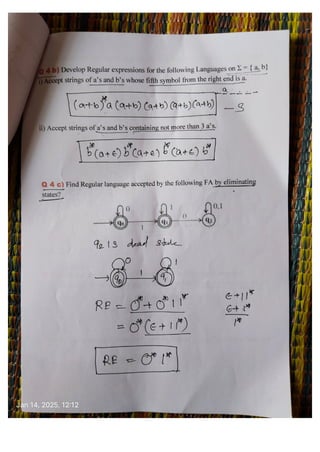 Q 4 b) Develop Regular expressions for the following Languages on Σ = { a, b}
i) Accept strings of a's and b's whose fifth symbol from the right end is a.
a _ _ _ _
(a+b)* a (a+b) (a+b) (a+b) (a+b)
ii) Accept strings of a's and b's containing not more than 3 a's.
b* (a+ε) b* (a+ε) b* (a+ε) b*
Q 4 c) Find Regular language accepted by the following FA by eliminating
states?
0 1 0,1
q0 q1 q2
1 0
q2 is dead state
0 1
q0 1 q1
RE = 0* + 0* 1 1*
= 0* (ε + 1 1*)
ε + 1 1*
ε + 1*
1*
RE = 0* 1*
Jan 14, 2025, 12:12